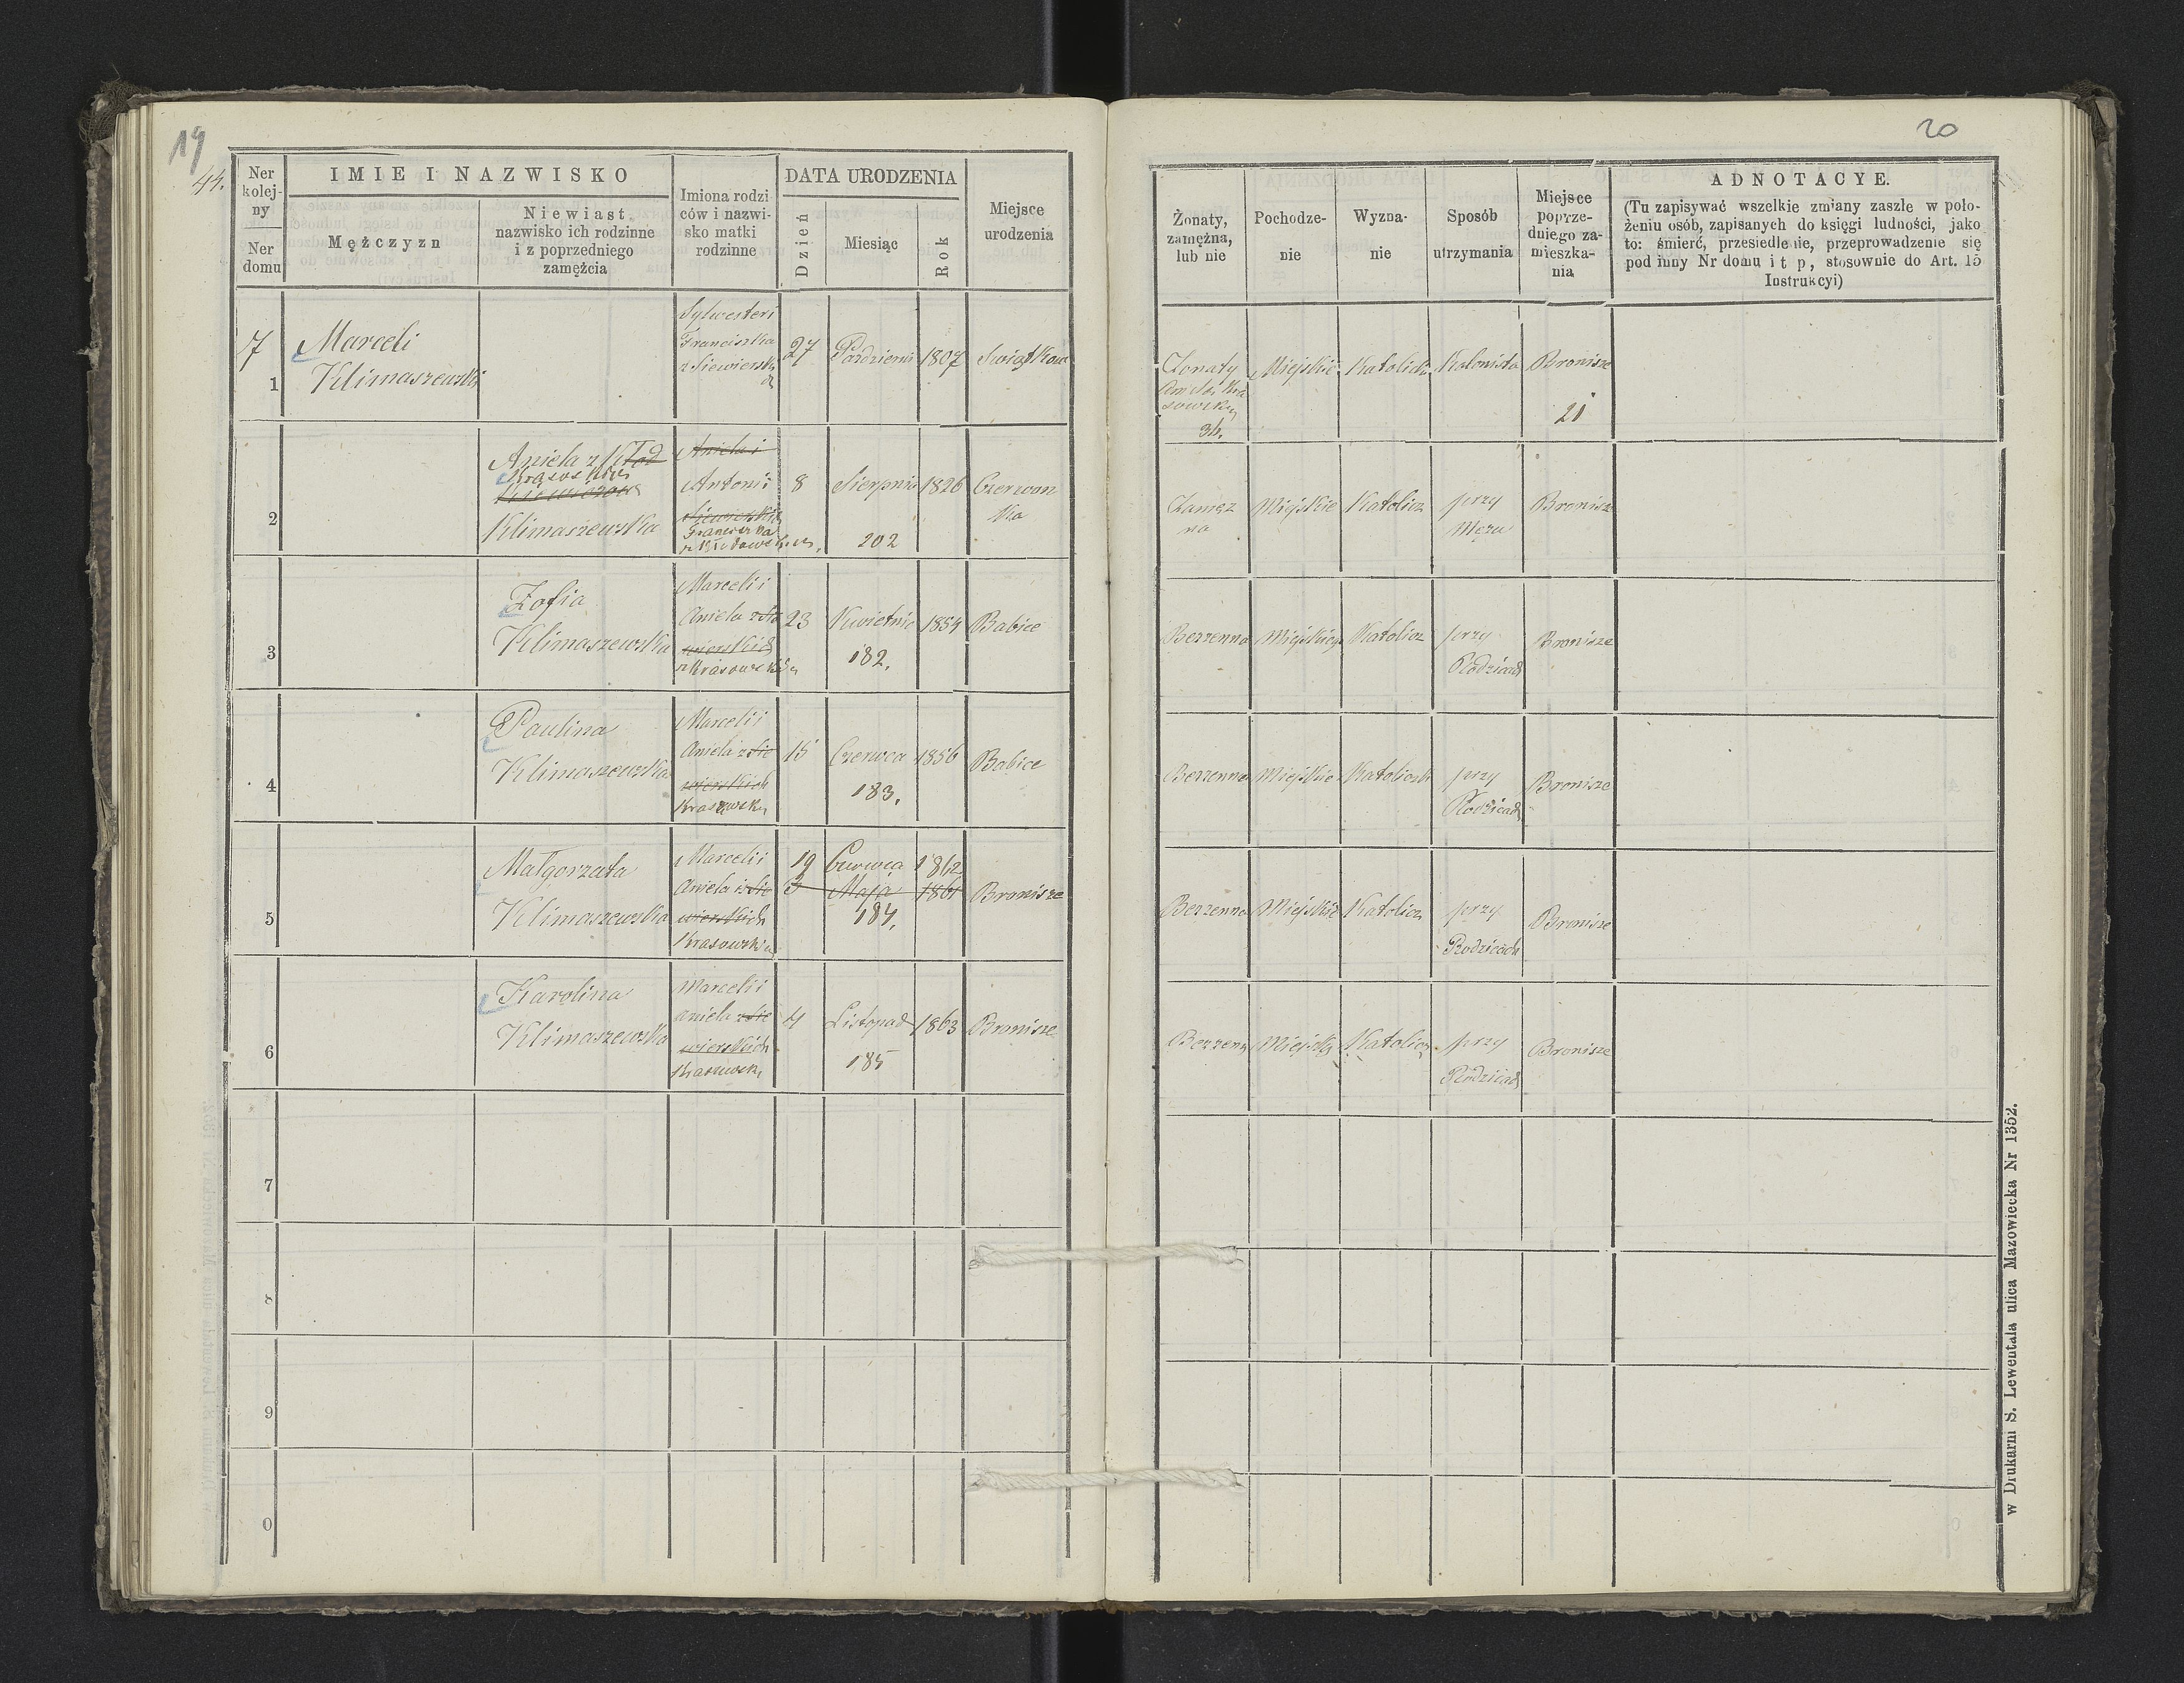 19
44.
Ner kolej- ny
Ner domu
IMIE I NAZWISKO
Mężczyzn
Niewiast
nazwisko ich rodzinne
i z poprzedniego
zamężcia
Imiona rodzi
ców i nazwi-
sko matki
rodzinne
DATA URODZENIA
Dzień
Miesiąc
Rok
Miejsce
urodzenia
7
1
Marceli
Klimaszewski
Sylwester i
Franciszka
z Siewierski
ch
27
Październi
1807
Swiątkow
2
Aniela z Kłod
Krasoskich
Klimaszewska
Aniela i
Antoni i
Siewierskich
Franciszka
8
Sierpnia
1826
Czerwon
ka
202
3
Zofia
Klimaszewska
Marceli i
Aniela z Sie
wierskich
z Krasowskich
23
Kwietnia
1854
Babice
182.
4
Paulina
Klimaszewska
Marceli i
Aniela z Sie
wierskich
Krasowsk
15
Czerwca
1856
Babice
183.
5
Małgorzata
Klimaszewska
Marceli i
Aniela z Sie
wierskich
Krasowskich
19 Czerwca 1862
3 Maja 1861
184.
Bronisze
6
Karolina
Klimaszewska
Marceli i
Aniela z Sie
wierskich
Krasowsk
4
Listopad
1863
Bronisze
185
7
8
9
0
20
Żonaty,
zamężna,
lub nie
Pochodze-
nie
Wyzna-
nie
Sposób
utrzymania
Miejsce
poprze-
dniego za-
mieszka-
nia
ADNOTACYE.
(Tu zapisywać wszelkie zmiany zaszłe w poło-
żeniu osób, zapisanych do księgi ludności, jako
to: śmierć, przesiedlenie, przeprowadzenie się
pod inny Nr domu i t p, stosownie do Art. 15
Instrukcyi)
Żonaty
36.
Miejskie
Katolick
Kolonista
Bronisze
21
Zamęż
na
Miejskie
Katolicz
przy
Mężu
Bronisz
Bezzenna
Miejskie
Katolicz
przy
Rodzicach
Bronisze
Bezzenna
Miejskie
Katolick
przy
Rodzicach
Bronisze
Bezzenna
Miejskie
Katolicz
przy
Rodzicach
Bronisze
Bezzenn
Miejsk
Katolicz
przy
Rodzicach
Bronisze
w Drukarni S. Lewentala ulica Mazowiecka Nr 1352.